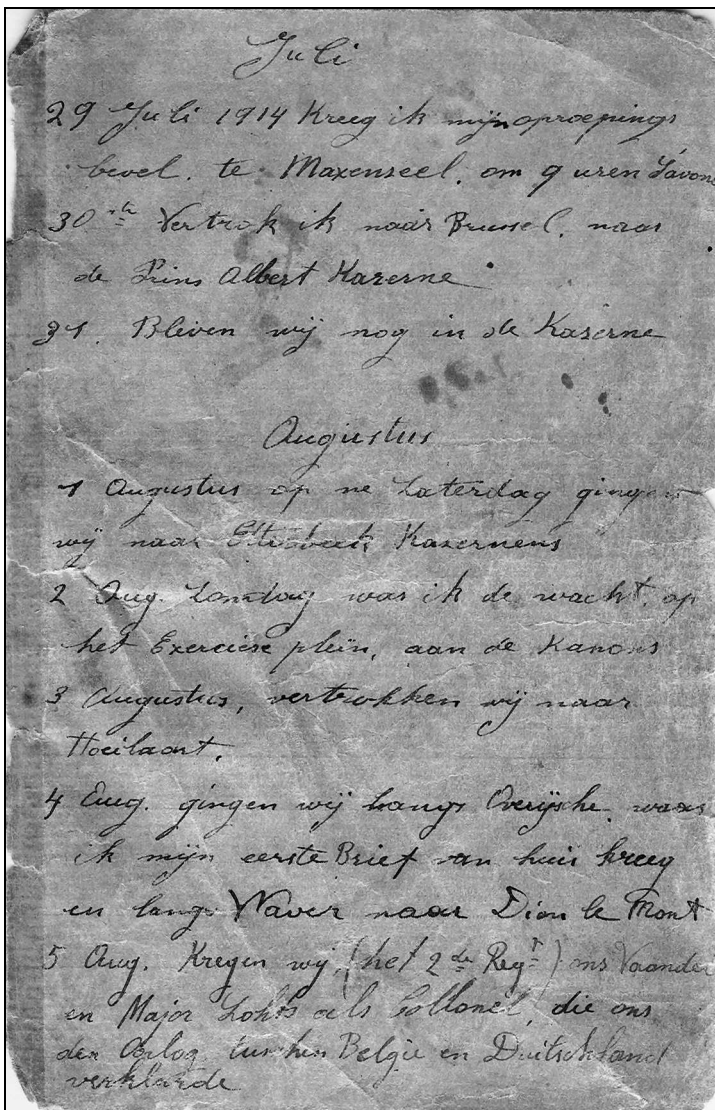 Juli
29 Juli 1914 Kreeg ik mijn oproepings
bevel. te Maxenseel. om 9 uren
30 ste Vertrok ik naar Brussel. naar
de Prins Albert Kazerne
31. Bleven wij nog in de Kazerne
Augustus
1 Augustus op ne Zaterdag gingen
wij naar Etterbeek Kazernens
2 Aug. Zondag was ik de wacht. op
het Exercise plein, aan de Kanons
3 Augustus, vertrokken wij naar
Hoeilaart.
4 Aug. gingen wij langs Overijsche. waar
ik mijn eerste Brief van huis kreeg
en langs Waver naar Dion le Mont
5 Aug. Kregen wij, (het 2 de Regt) ons Vaandel
en Major als Collonel, die ons
den Oorlog tuschen Belgie en Duitschland
verklarde